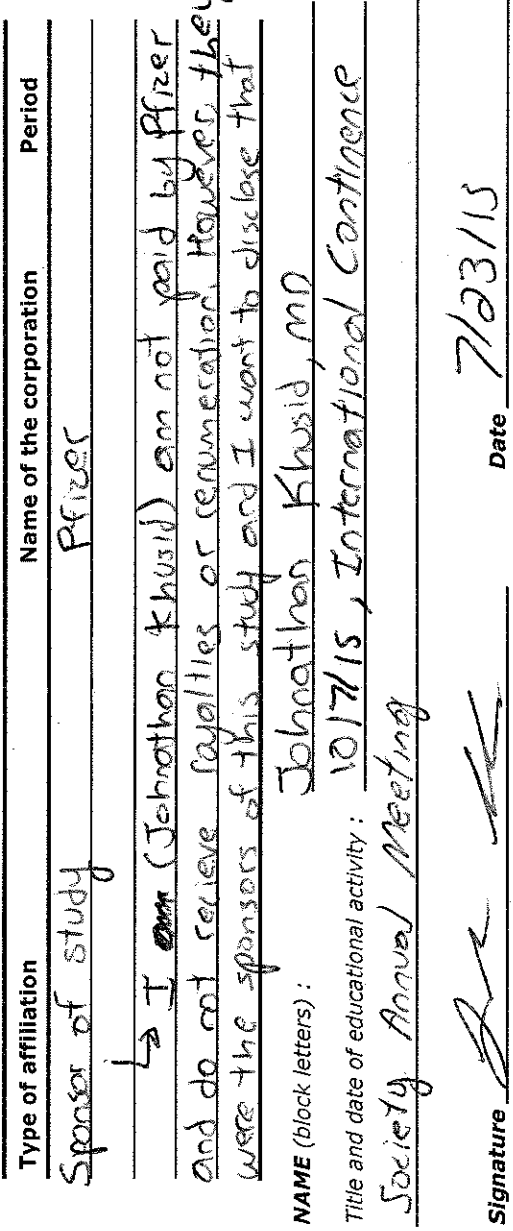 Type of affiliation Name of the corporation Period
Sponsor of study Pfizer
↳ I (Johnathan Khusid) am not paid by Pfizer
and do not recieve royalties or renumeration. However, they
were the sponsors of this study and I want to disclose that
NAME (block letters) : Johnathan Khusid, MD
Title and date of educational activity : 10/7/15, International Continence
Society Annual Meeting
Signature Date 7/23/15